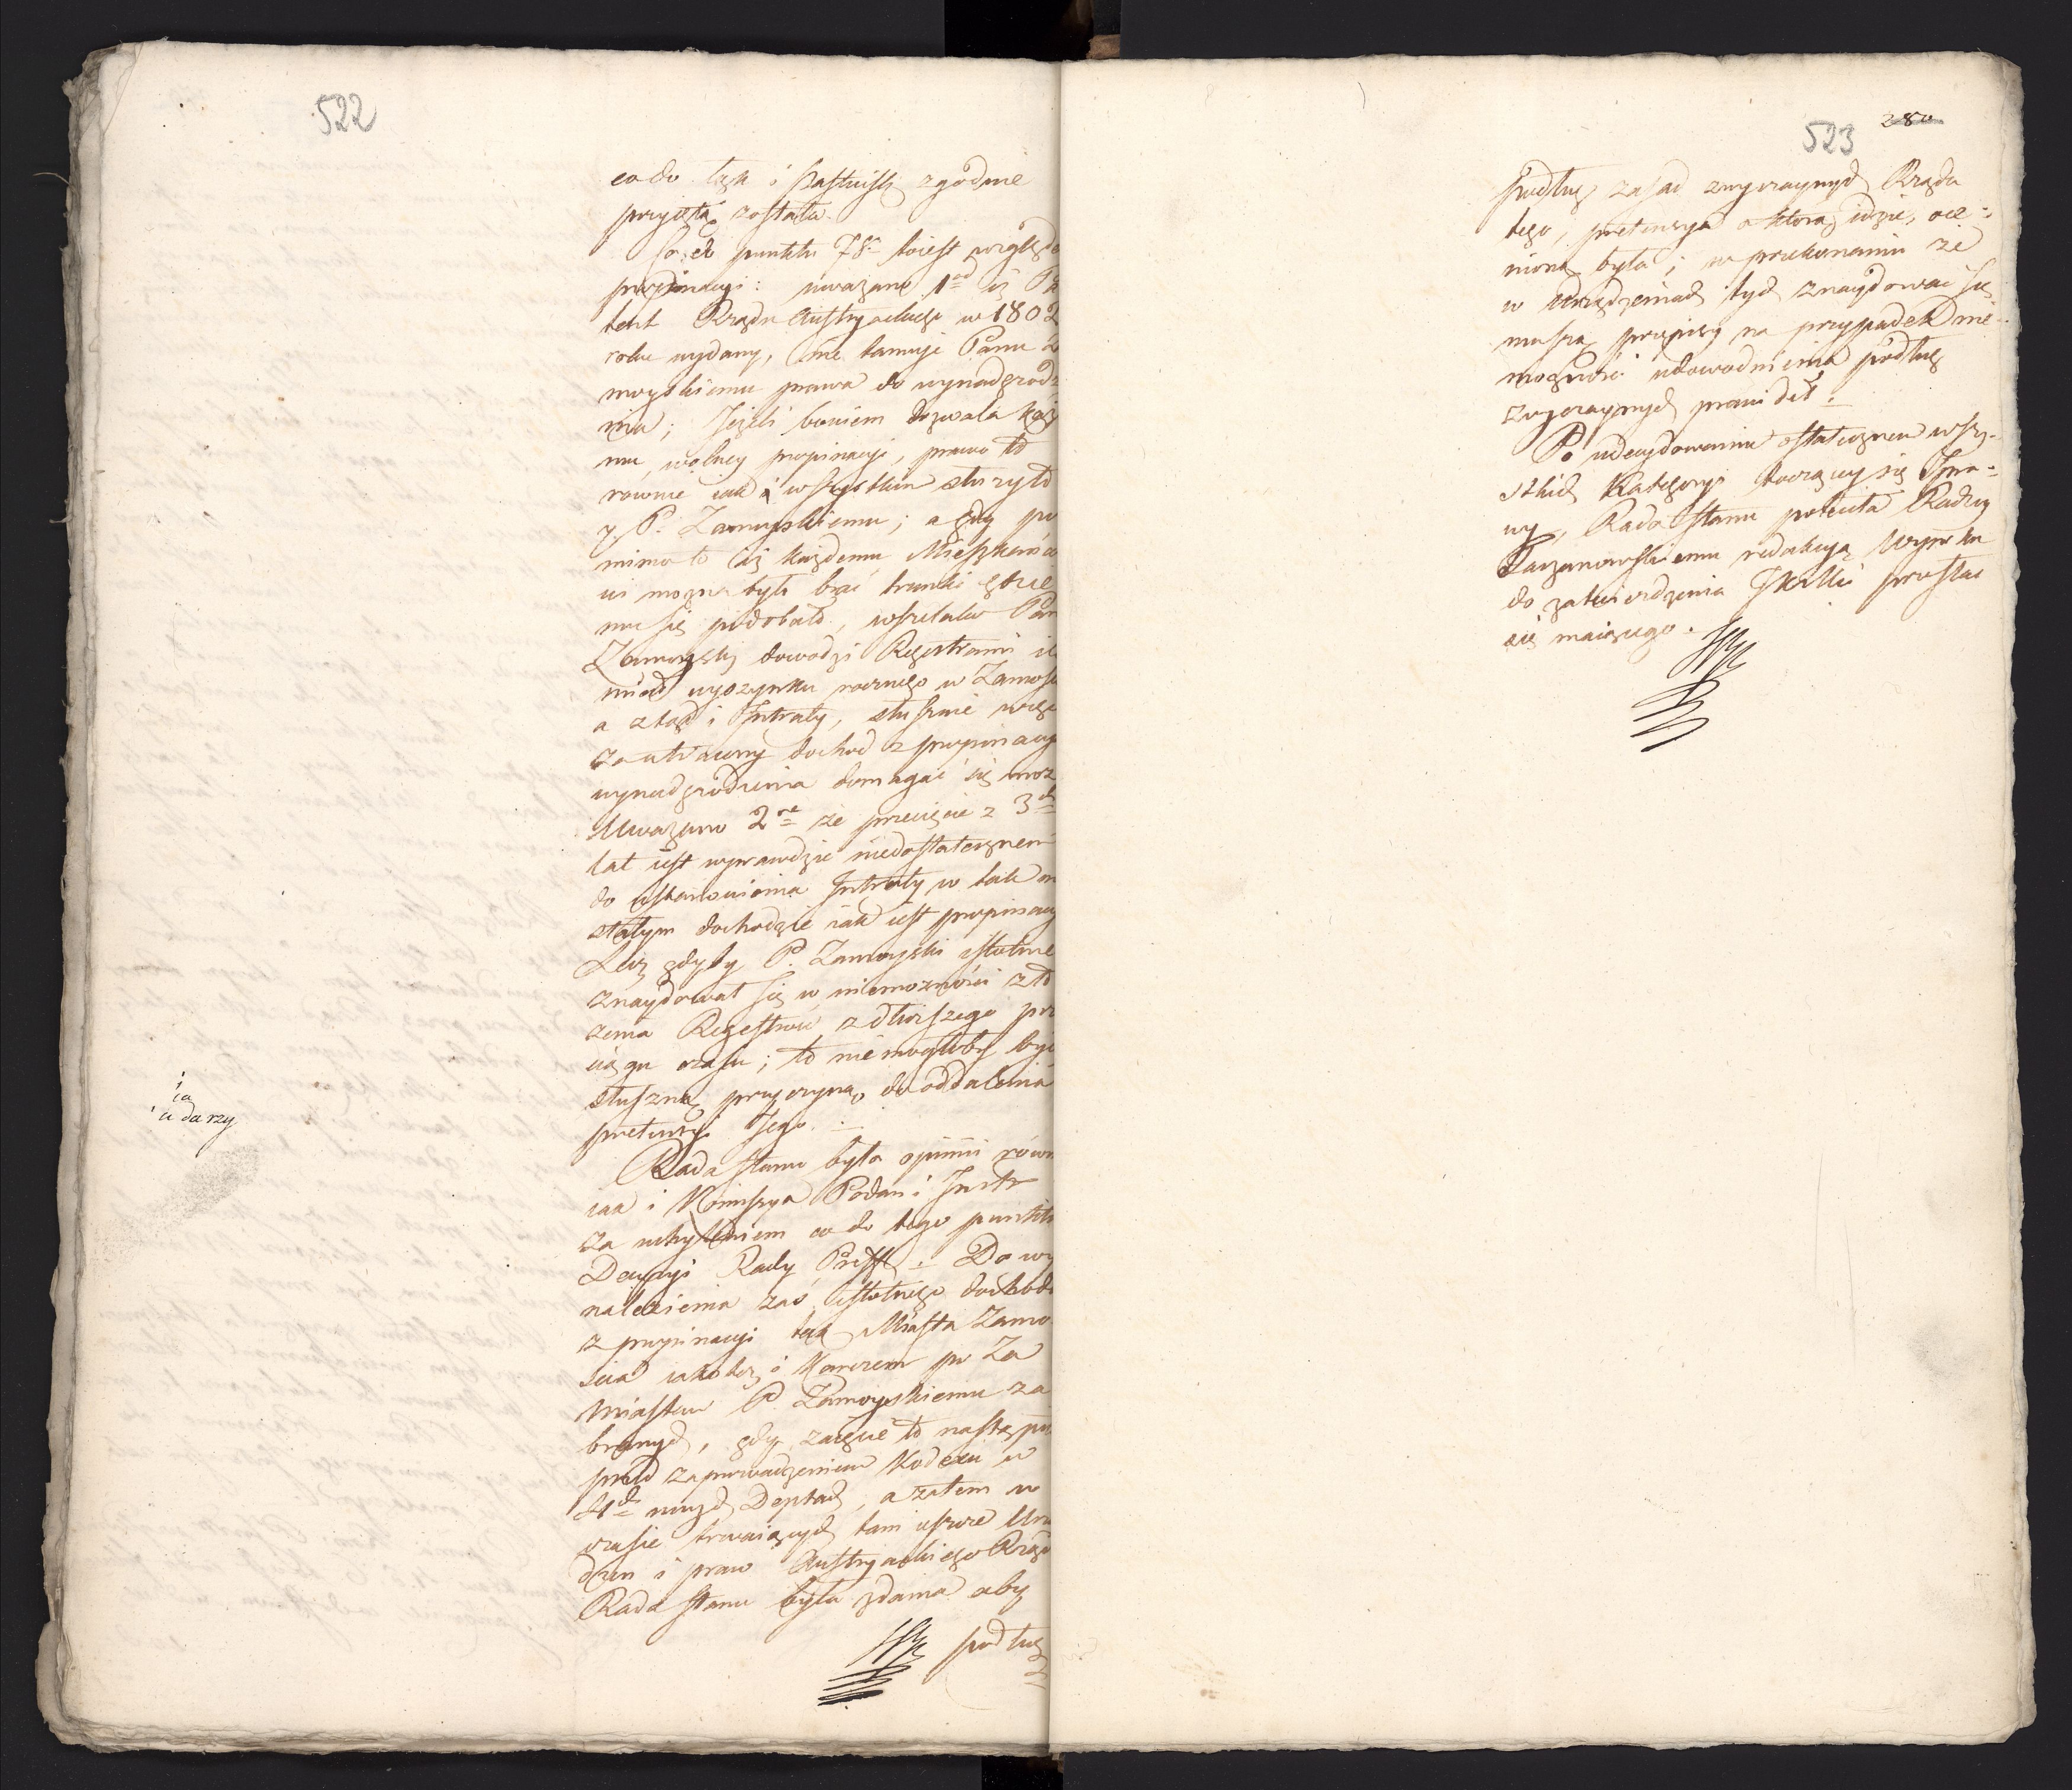 522
co do łąk i Pastwisk zgodnie
przyięta została.
Co do punktu 78º toiest względe
propinacyi: uważano 1mo iż Pa
tent Rządu Austryackiego w 1802
roku wydany, nie tamuje Panu Za
moyskiemu prawa do wynadgrodze
nia; Jeżeli bowiem dozwala każ
mu wolney propinacyi, prawo to
równie iak i wszystkim służyło
y P. Zamoyskiemu; a gdy po
mimo to iż każdemu Mieszkańco
wi można było brać trunki gdzie
mu się podobało, wszelako Pan
Zamoyski dowodzi Regestrami ile
miał wyszynku rocznego w Zamośc
a ztąd i Intraty, słusznie więc
za utracony dochod z propinacyi
wynadgrodzenia domagać się moż
Uważano 2re że przecięcie z 3ch
lat iest wprawdzie niedostatecznem
do ustanowienia Intraty w tak nie
stałym dochodzie iak iest propinacy
Lecz gdyby P. Zamoyski istotnie
znaydował się w niemożności zło
żenia Regestrów z dłuższego prze
ciągu czasu; to nie mogłoby być
słuszną przyczyną do oddalenia
pretensyi Jego.
Rada Stanu była opinii równ
iak i Kommissya Podań i Instr
za uchyleniem co do tego punktu
Decyzyi Rady Preff. Do wy
nalezienia zaś istotnego dochodu
z propinacyi tak Miasta Zamo
ścia iako też i Karczem po Za
miastem P. Zamoyskiemu za
branych, gdy zaięcie to nastąpi
przed zaprowadzeniem Kodexu w
4ch nowych Deptach, a zatem w
czasie trwaiących tam ieszcze Urzą
dzeń i praw Austryackiego Rządu
Rada Stanu była zdania aby
podług
ia
u darzy
523
280
podług zasad zwyczaynych Rządu
tego, pretensya o którą idzie, oce-
nioną była; w przekonaniu że
w Urządzeniach tych znaydować się
muszą przepisy na przypadek nie-
możności udowodnienia podług
zwyczaynych prawideł.
Po udecydowaniu ostatecznem wszy-
stkich Kategoryi toczącey się Spra-
wy, Rada Stanu poleciła Radcy
redakcyą Wyroku
do zatwierdzenia JKMci przesłać
się maiącego.